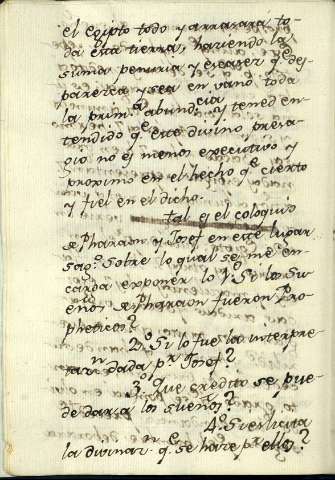 el egipto todo y arrasará to-
da esta tierra, haciendo la
suma penuria y escasez qe des-
parezca y sea en vano toda
la primª abundcia y tened en-
tendido qe este divino presa-
gio no es menos executivo y
proximo en el hecho qe cierto
y fiel en el dicho.
Tal es el coloquio
de Pharaon y Josef en este lugar
sagº. Sobre lo qual se me en-
carga exponer lo 1º Si los Su-
eños de Pharaon fueron Pro-
pheticos?
2º Si lo fue la interpre-
tan dada pr Josef?
3º Que credito se pue-
de dar a los sueños?
4º Si es licita
la divinan qe se hace pr ellos?